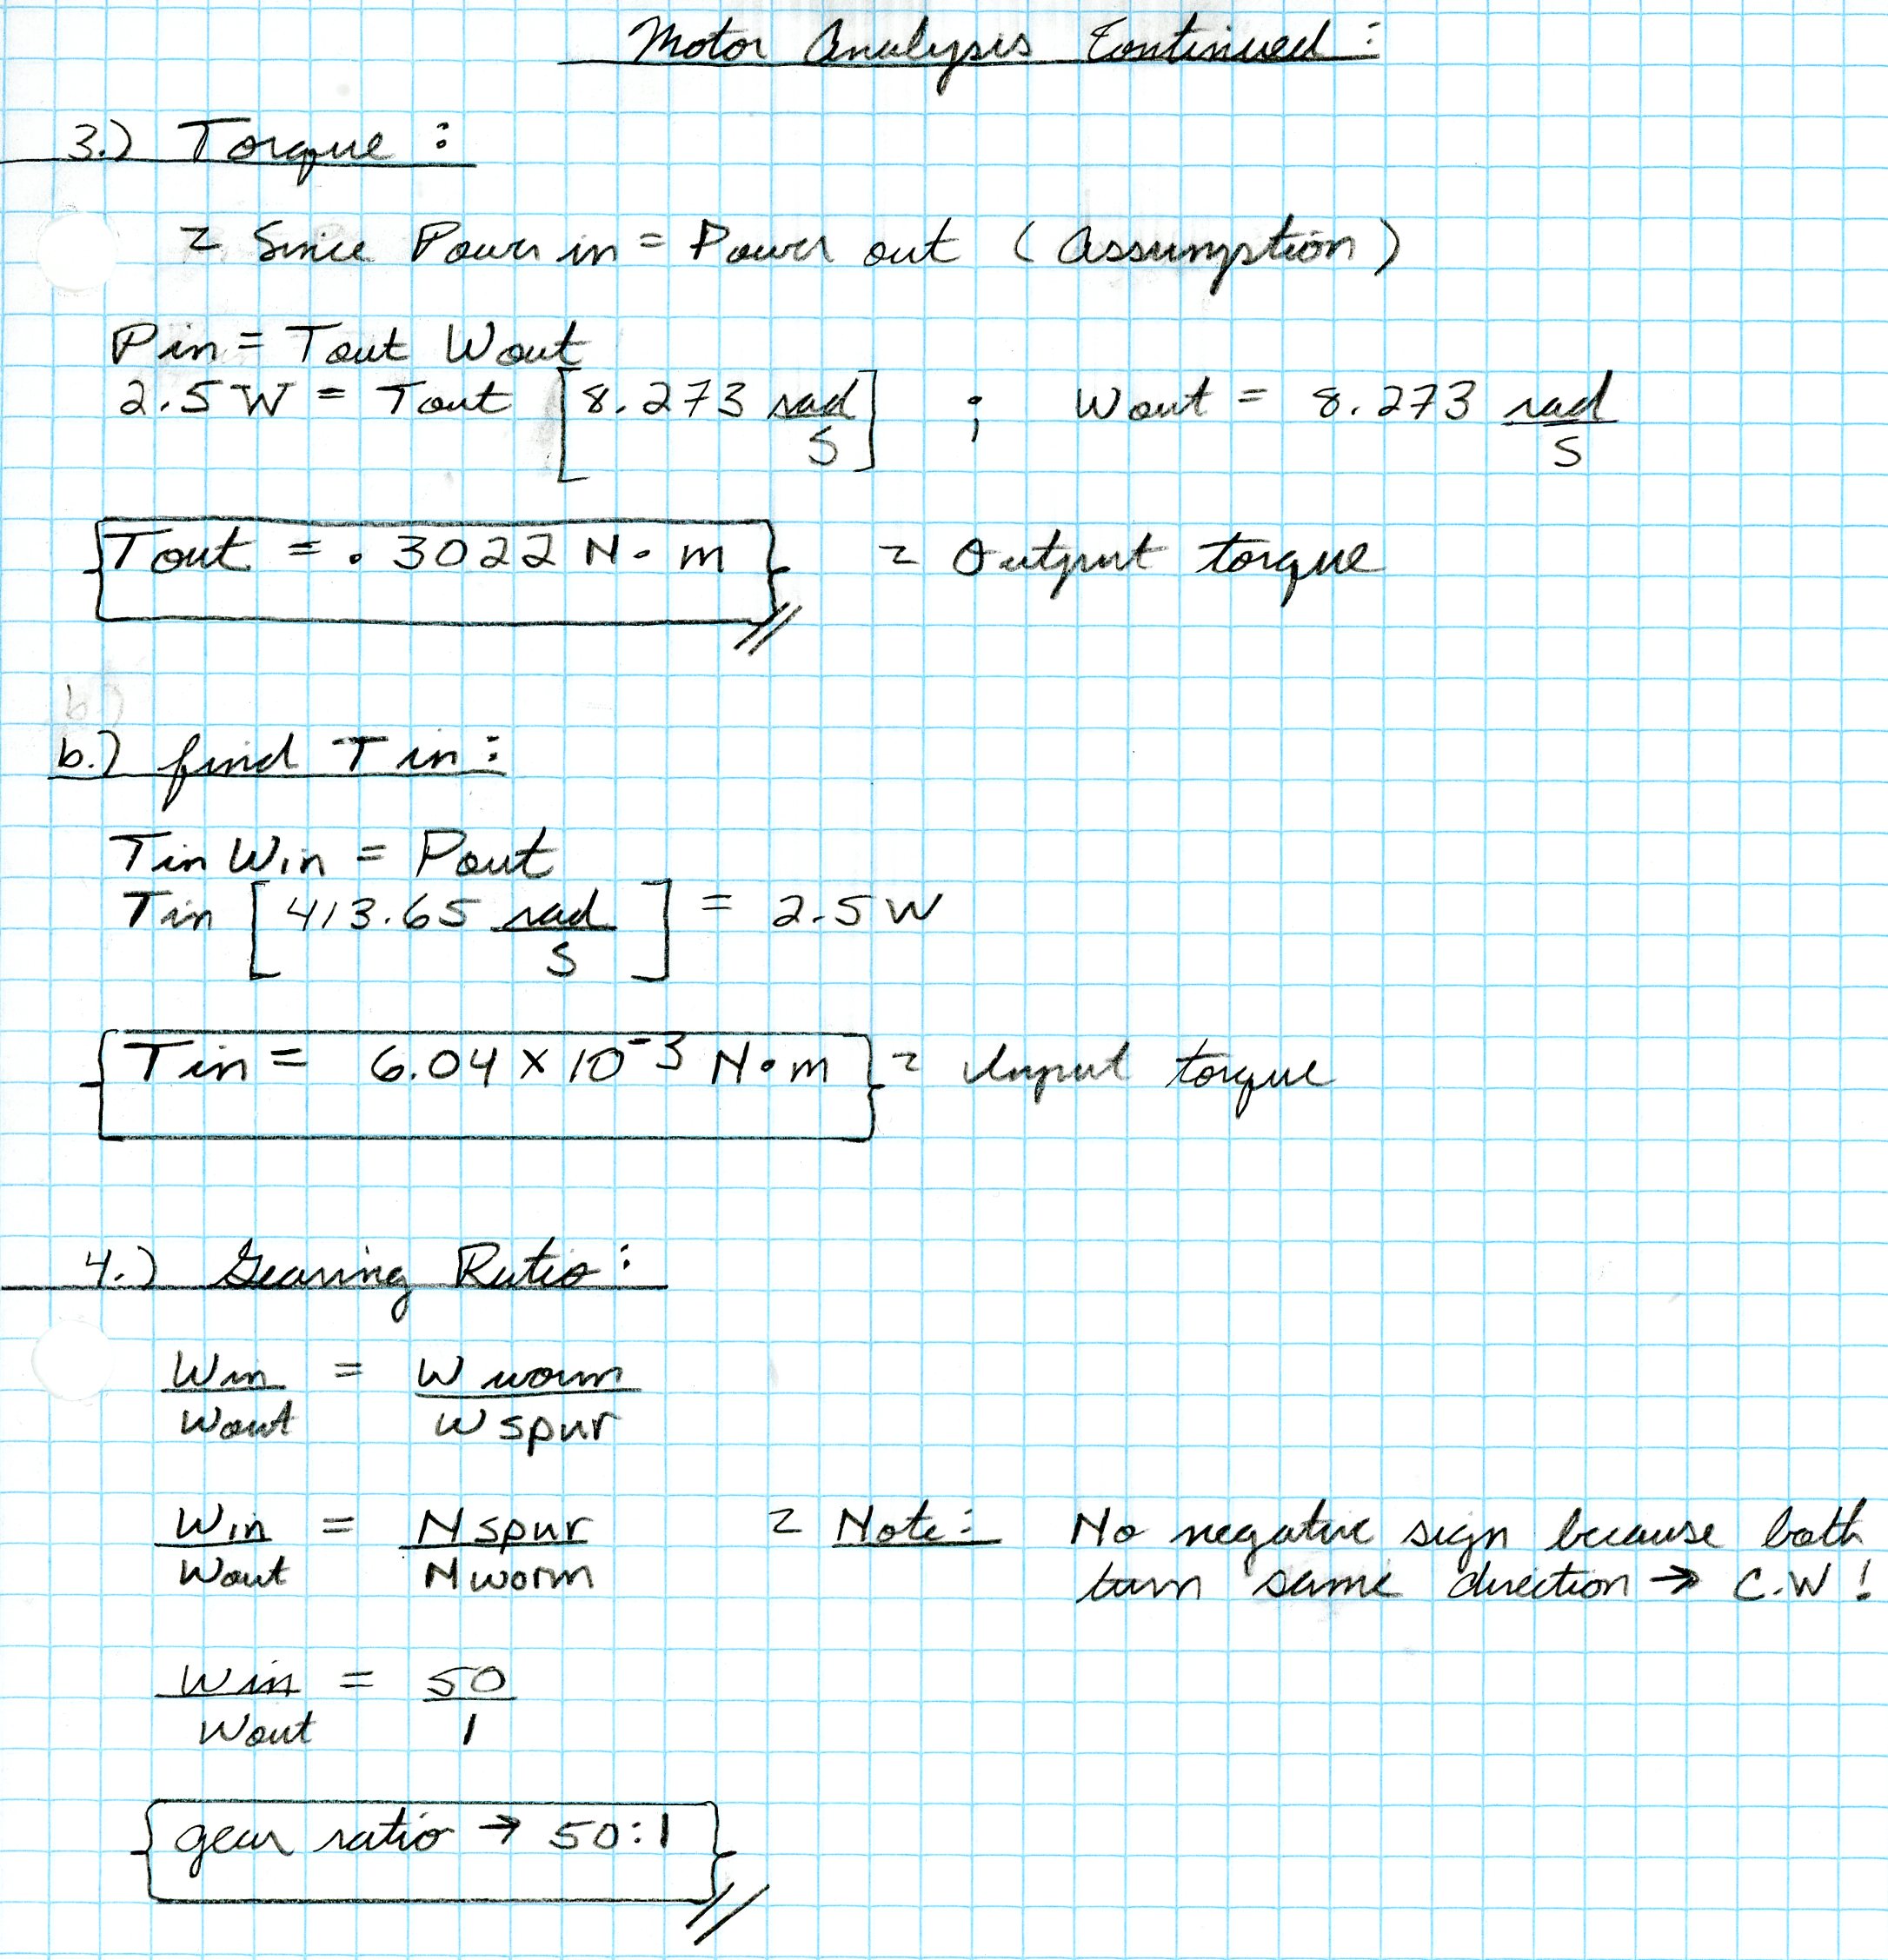 Motor Analysis Continued:
3.) Torque:
= Since Power in = Power out (Assumption)
Pin = Tout Wout
2.5 W = Tout [8.273 rad/s] ; Wout = 8.273 rad/s
Tout = .3022 N·m = Output torque
b)
b.) find Tin:
Tin Win = Pout
Tin [413.65 rad/s] = 2.5 W
Tin = 6.04 x 10^-3 N·m = Input torque
4.) Gearing Ratio:
Win/Wout = W worm/W spur
Win/Wout = N spur/N worm = Note: No negative sign because both
turn same direction → C.W!
Win/Wout = 50/1
gear ratio → 50:1